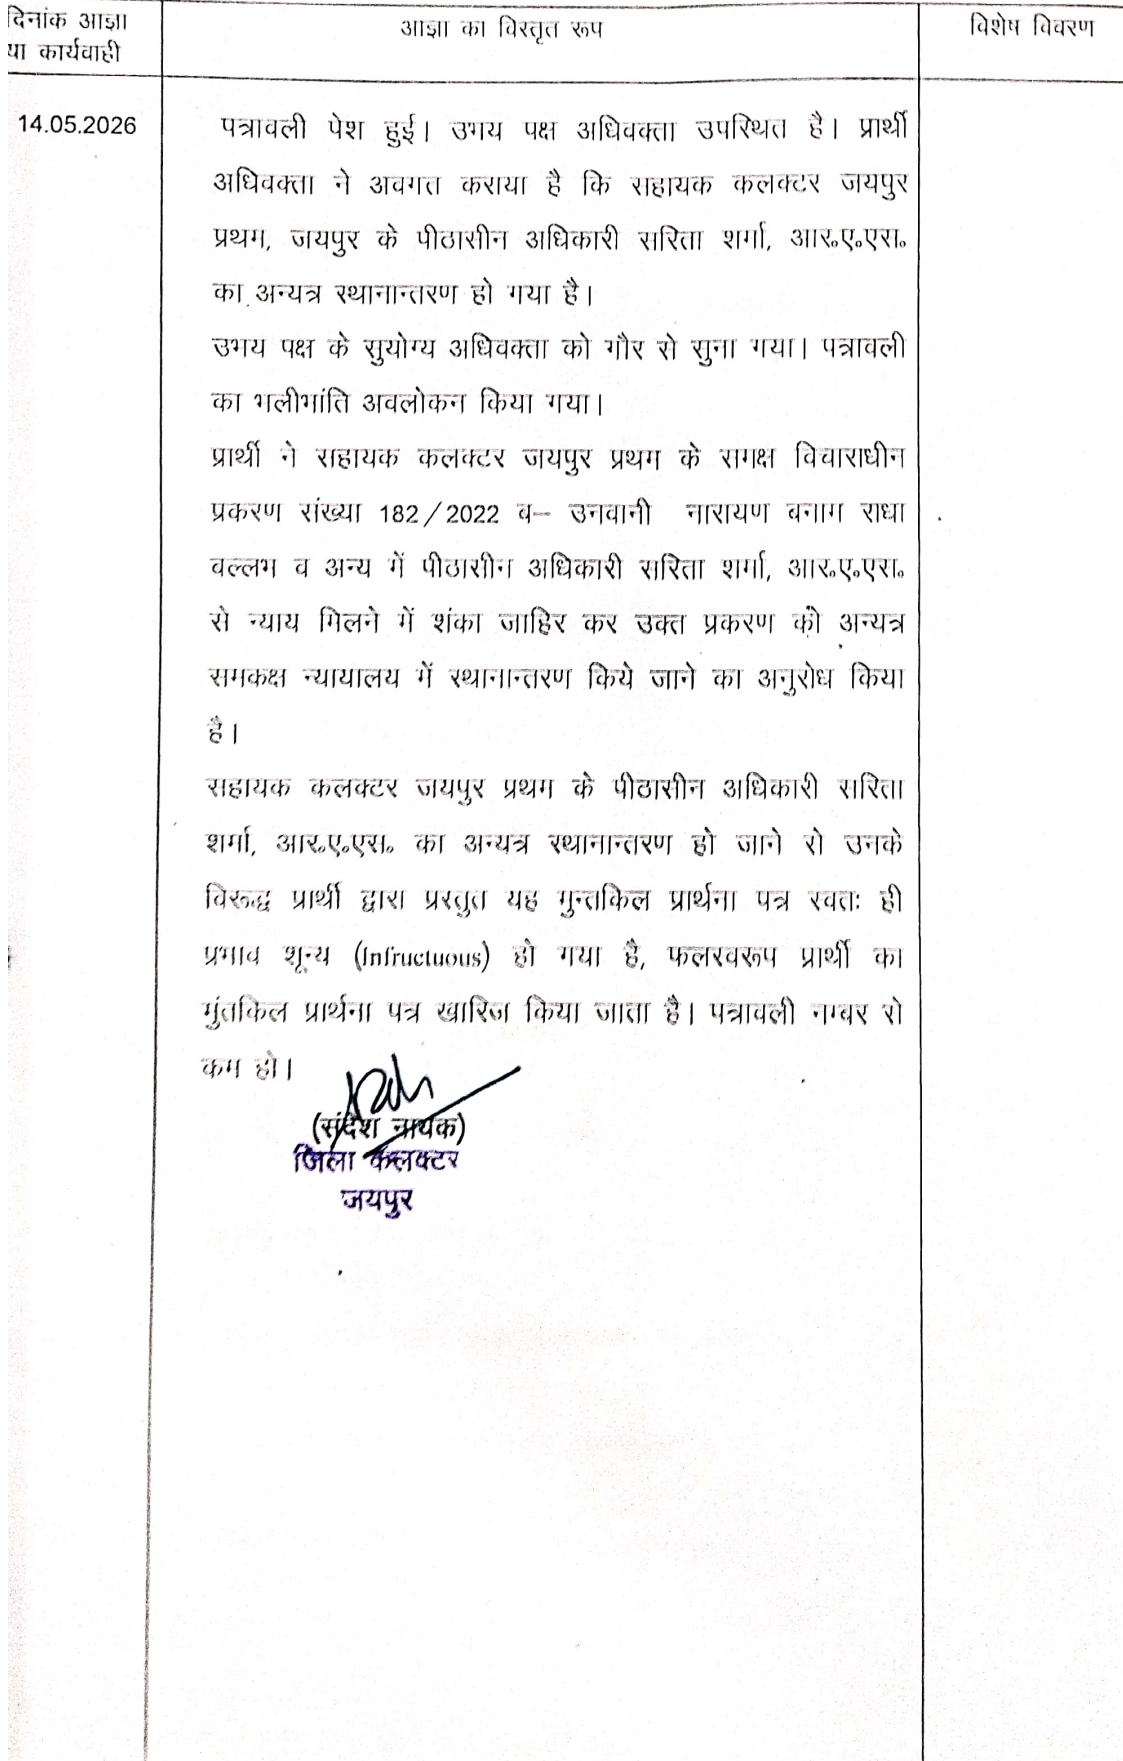 दिनांक आज्ञा
या कार्यवाही
आज्ञा का विस्तृत रूप
विशेष विवरण
14.05.2026
पत्रावली पेश हुई। उभय पक्ष अधिवक्ता उपस्थित है। प्रार्थी
अधिवक्ता ने अवगत कराया है कि सहायक कलक्टर जयपुर
प्रथम, जयपुर के पीठासीन अधिकारी सरिता शर्मा, आर०ए०एस०
का अन्यत्र स्थानान्तरण हो गया है।
उभय पक्ष के सुयोग्य अधिवक्ता को गौर से सुना गया। पत्रावली
का भलीभांति अवलोकन किया गया।
प्रार्थी ने सहायक कलक्टर जयपुर प्रथम के समक्ष विचाराधीन
प्रकरण संख्या 182/2022 ब– उनवानी नारायण बनाम राधा
वल्लभ व अन्य में पीठासीन अधिकारी सरिता शर्मा, आर०ए०एस०
से न्याय मिलने में शंका जाहिर कर उक्त प्रकरण को अन्यत्र
समकक्ष न्यायालय में स्थानान्तरण किये जाने का अनुरोध किया
है।
सहायक कलक्टर जयपुर प्रथम के पीठासीन अधिकारी सरिता
शर्मा, आर०ए०एस० का अन्यत्र स्थानान्तरण हो जाने से उनके
विरूद्ध प्रार्थी द्वारा प्रस्तुत यह मुन्तकिल प्रार्थना पत्र स्वतः ही
प्रभाव शून्य (Infructuous) हो गया है, फलस्वरूप प्रार्थी का
मुंतकिल प्रार्थना पत्र खारिज किया जाता है। पत्रावली नम्बर से
कम हो।
(संदेश नायक)
जिला कलक्टर
जयपुर